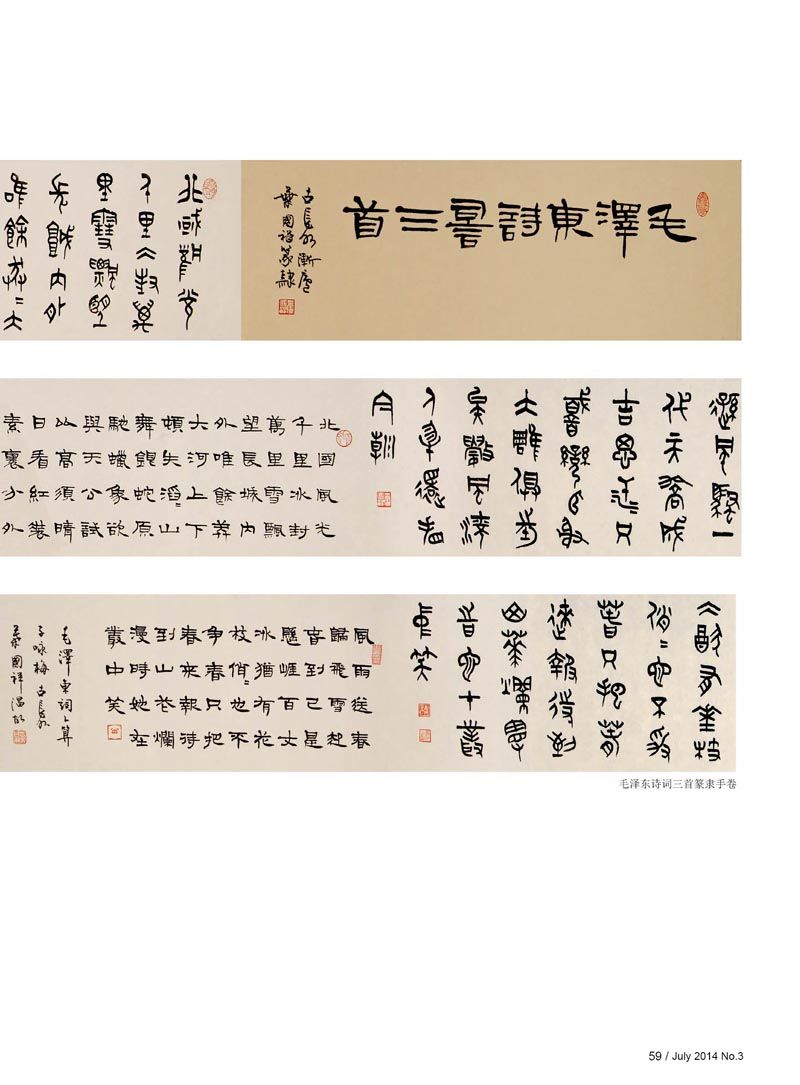 毛澤東詩詞三首
北國風光
千里冰封萬
里雪飄望
長城內外
唯餘莽〻大
遜風騷一
代天驕成
吉思汗只
識彎弓射
大雕俱往
矣數風流
人物還看
今朝
北國風光
千里冰封
萬里雪飄
望長城內
外唯餘莽
大河上下
頓失滔〻山
舞銀蛇原
馳蠟象欲
與天公試
比高須晴
日看紅裝
素裹分外
冰猶有花枝
俏〻也不爭
春只把春
來報待到
山花爛漫
時她在叢
中笑
風雨送春
歸飛雪迎
春到已是
懸崖百丈
冰猶有花
枝俏〻也不
爭春只把
春來報待
到山花爛
漫時她在
叢中笑
毛澤東詞卜算
子咏梅 古長安
毛泽东诗词三首篆隶手卷
59 / July 2014 No.3